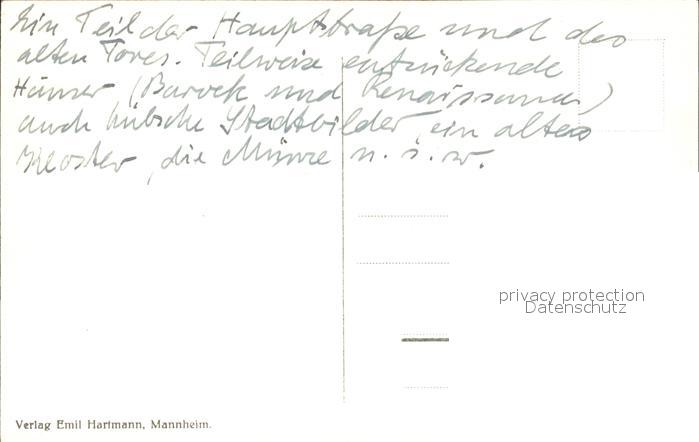 Ein Teil der Hauptstraße und des
alten Tores. Teilweise entzückende
Häuser (Barock und Renaissance)
auch hübsche Stadtbilder, ein altes
Kloster, die Münze u. s. w.
privacy protection
Datenschutz
Verlag Emil Hartmann, Mannheim.